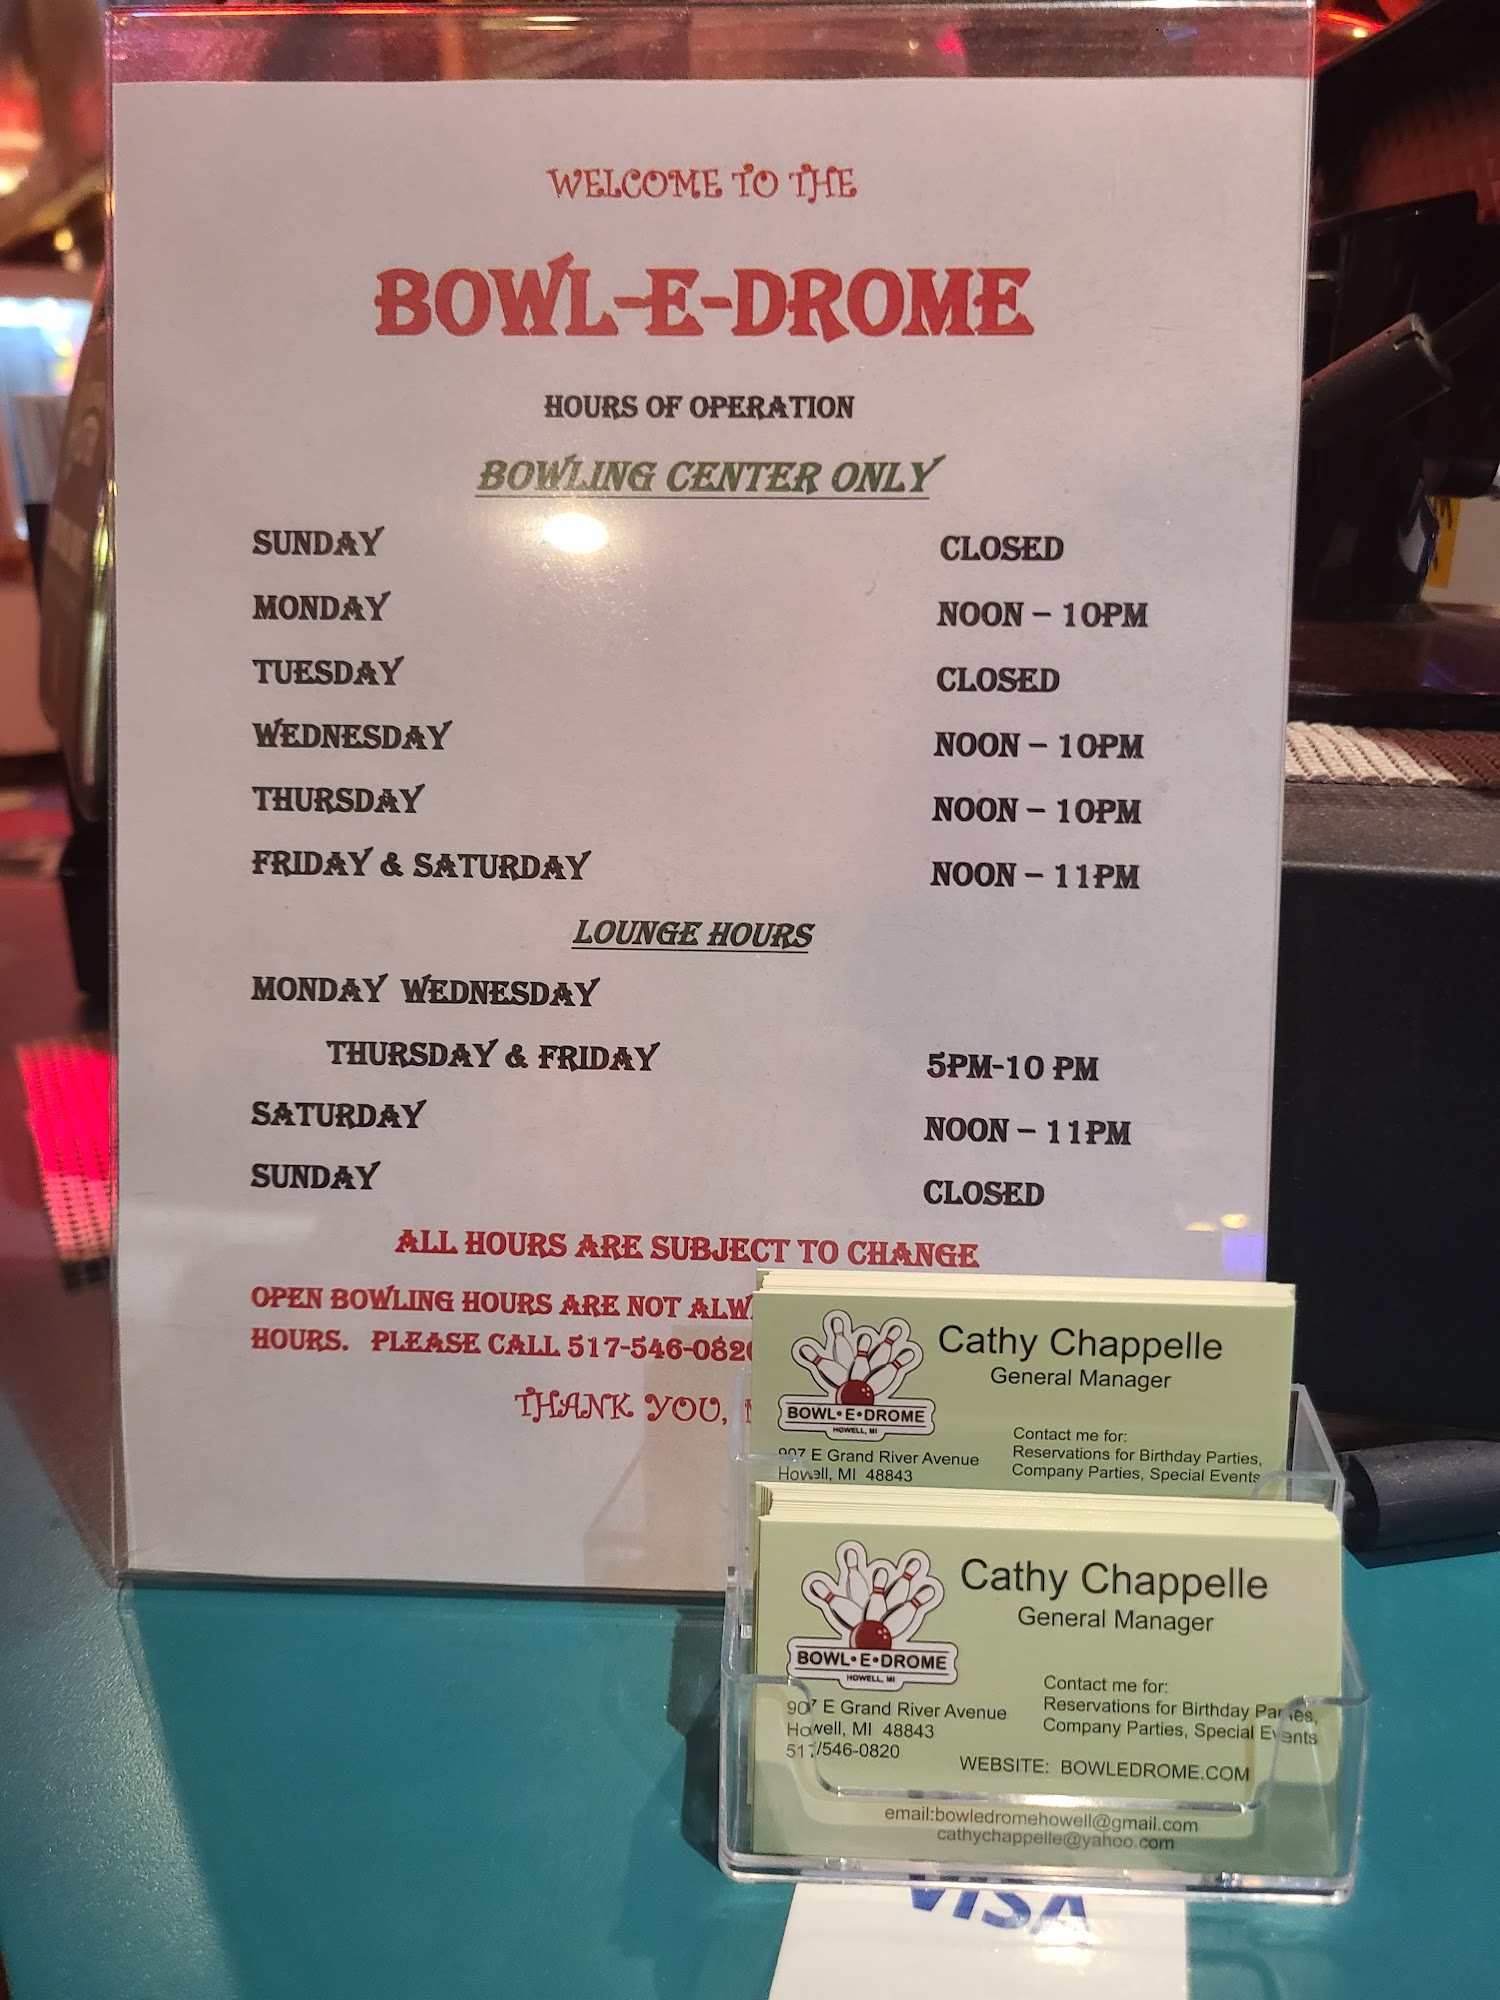 WELCOME TO THE
BOWL-E-DROME
HOURS OF OPERATION
BOWLING CENTER ONLY
SUNDAY CLOSED
MONDAY NOON – 10PM
TUESDAY CLOSED
WEDNESDAY NOON – 10PM
THURSDAY NOON – 10PM
FRIDAY & SATURDAY NOON – 11PM
LOUNGE HOURS
MONDAY WEDNESDAY
THURSDAY & FRIDAY 5PM-10 PM
SATURDAY NOON – 11PM
SUNDAY CLOSED
ALL HOURS ARE SUBJECT TO CHANGE
OPEN BOWLING HOURS ARE NOT
HOURS. PLEASE CALL 517-546-0820
THANK YOU,
Cathy Chappelle
General Manager
BOWL•E•DROME
HOWELL, MI
Contact me for:
Reservations for Birthday Parties,
Company Parties, Special Events
907 E Grand River Avenue
Howell, MI 48843
Cathy Chappelle
General Manager
BOWL•E•DROME
HOWELL, MI
Contact me for:
Reservations for Birthday Parties,
Company Parties, Special Events
907 E Grand River Avenue
Howell, MI 48843
517/546-0820
WEBSITE: BOWLEDROME.COM
email:bowledromehowell@gmail.com
cathychappelle@yahoo.com
VISA